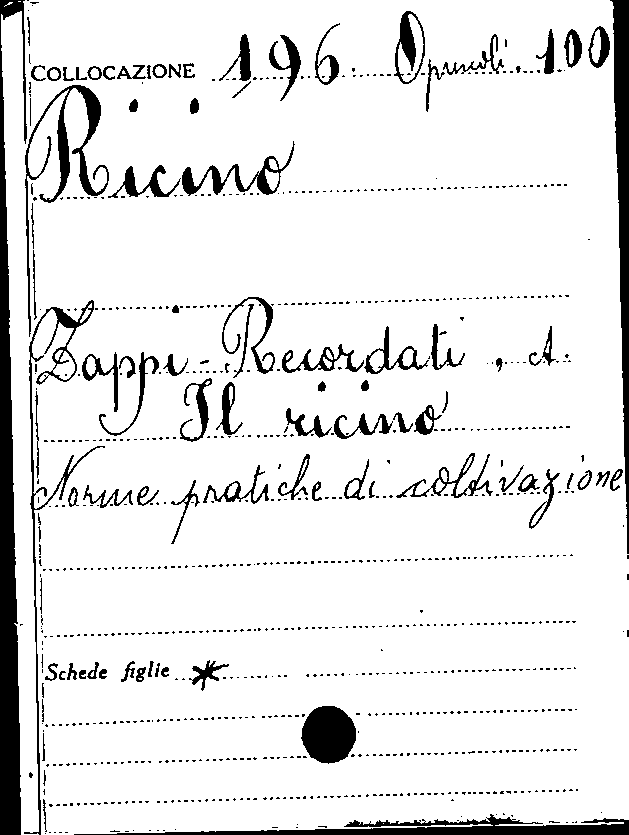 COLLOCAZIONE 196. Opuscoli. 100
Ricino
Zappi-Recordati, A.
Il ricino
Norme pratiche di coltivazione
Schede figlie *